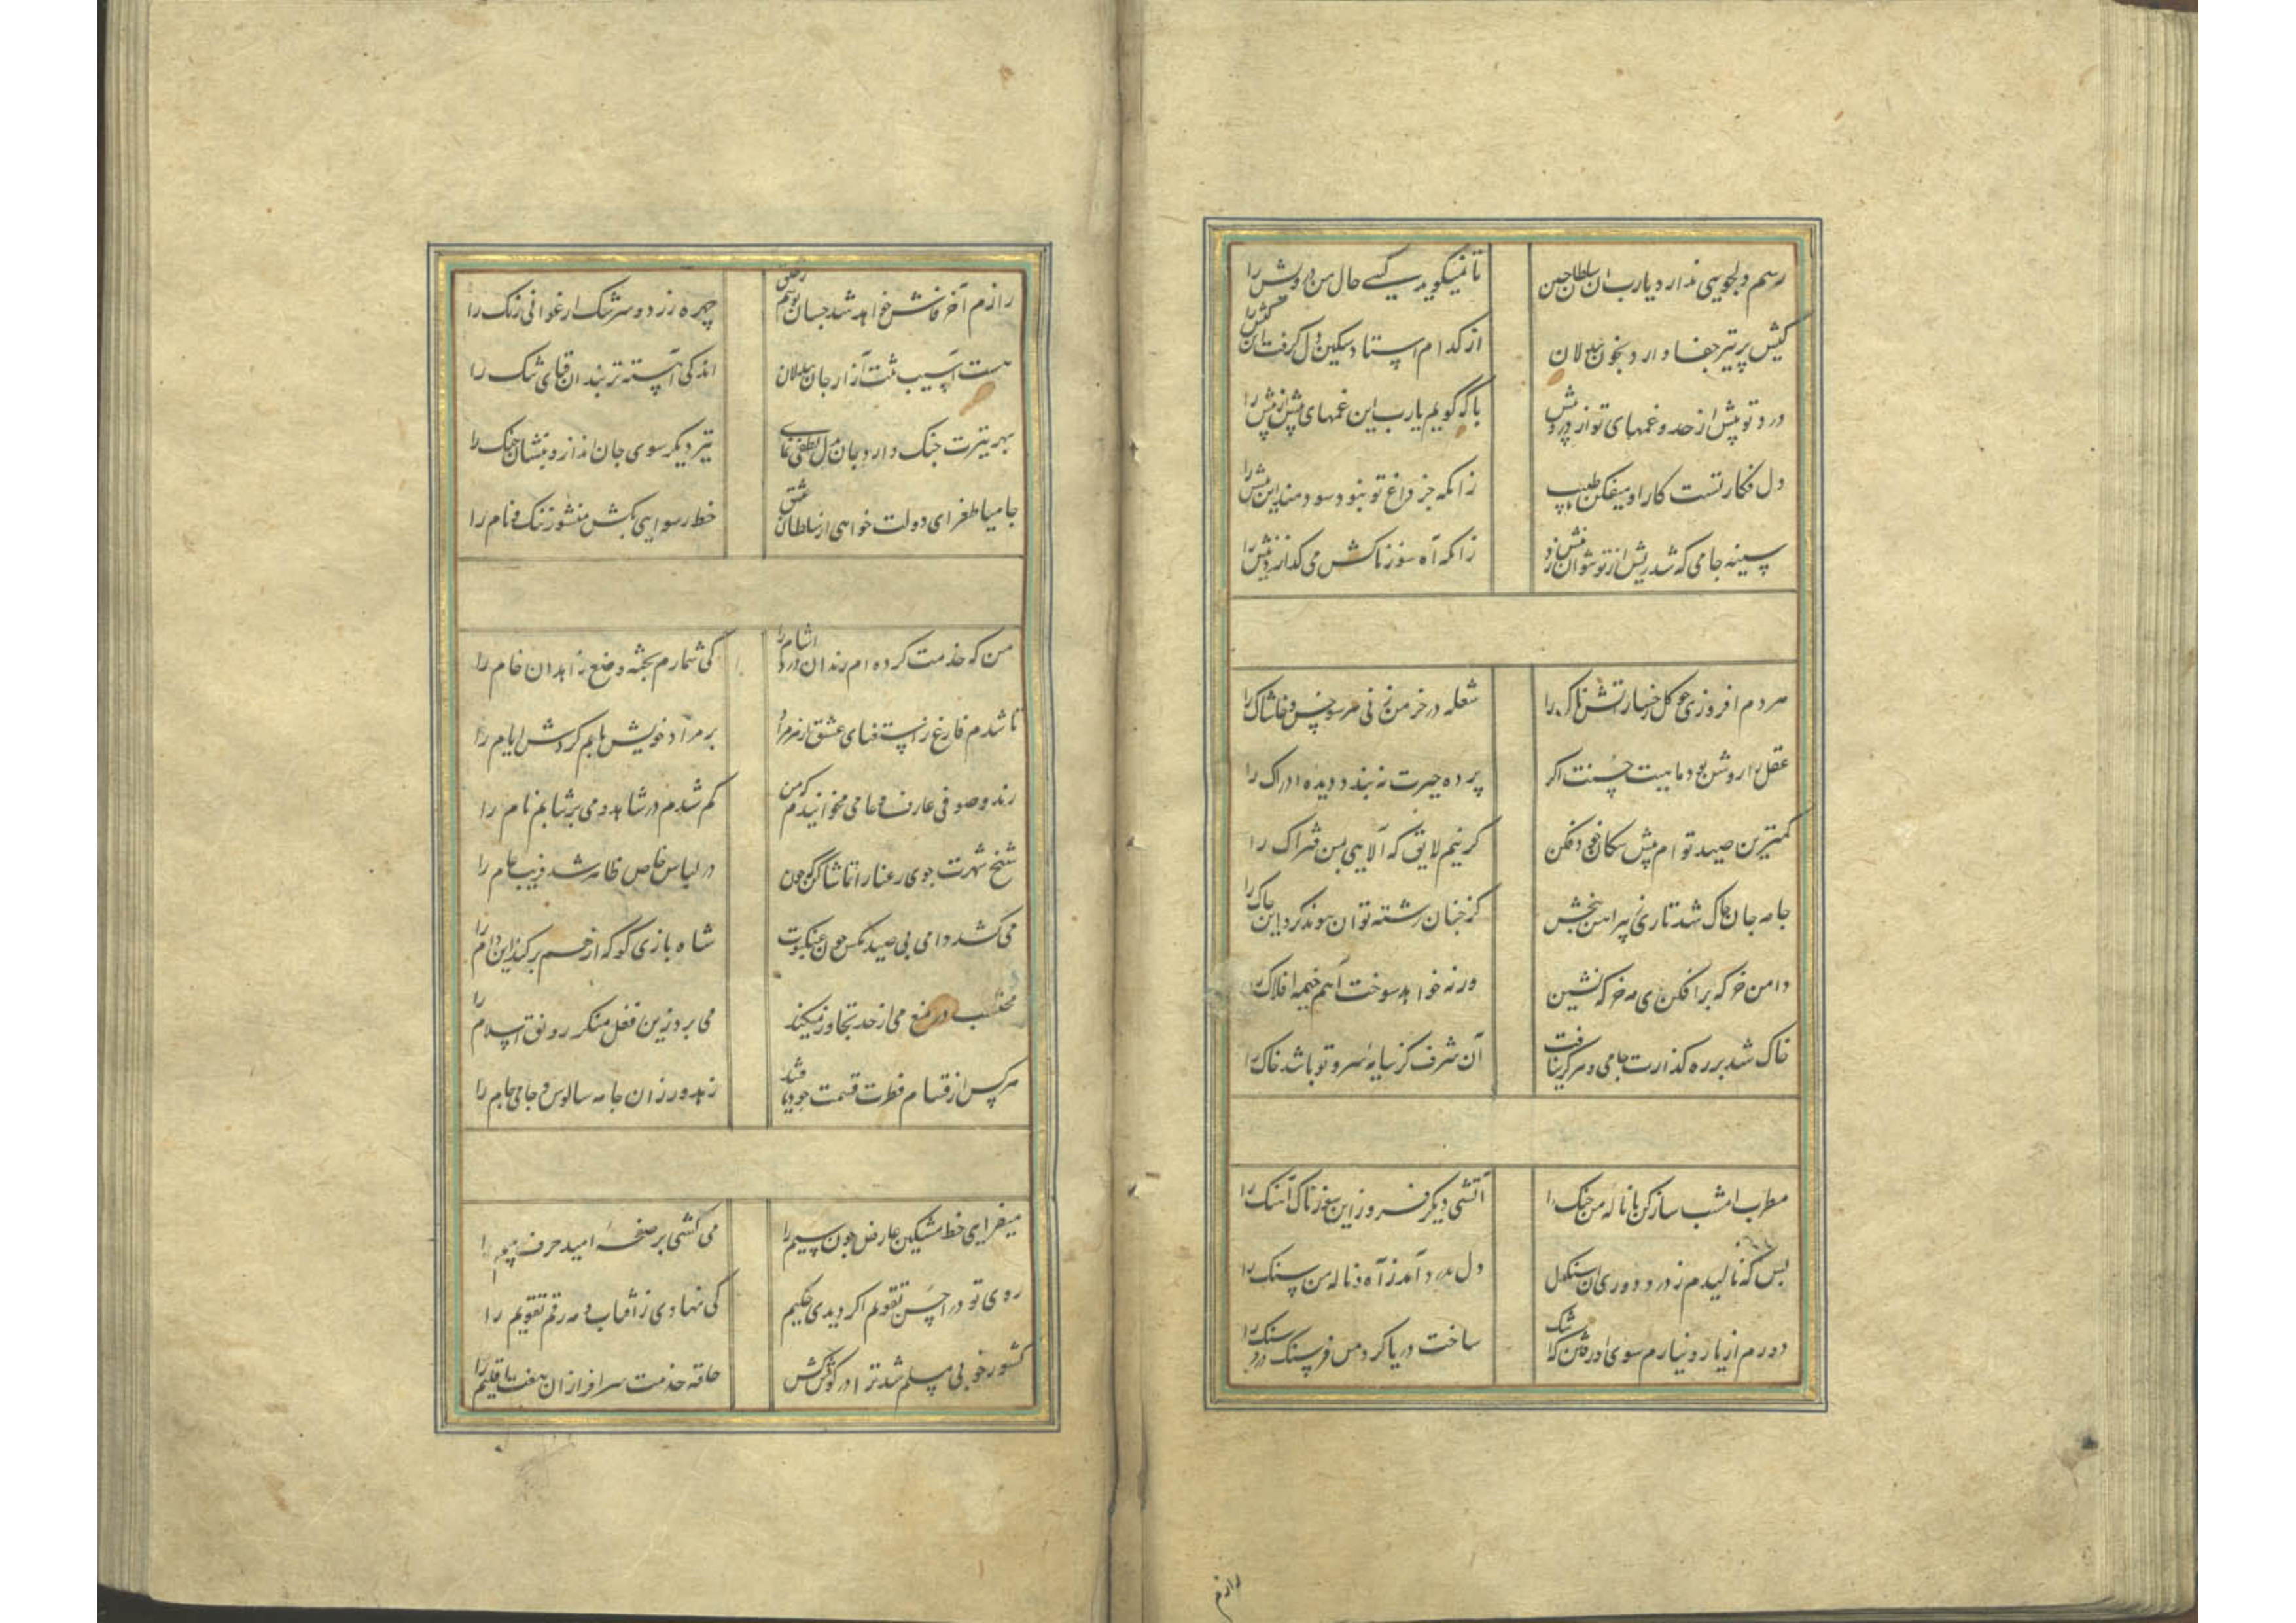 رسم دلجویی ندارد یارب آن سلطان حسن
تا نمیگوید کسی حال من درویش را
کیش پر تیر جفا دارد بخون بیدلان
از کدام استاد سنگین دل گرفت این کیش را
درد تو بیش از حد و غمهای تو از درد بیش
با که گویم یارب این غمهای بیش از بیش را
دل فکار تست کار او میفکن با طبیب
زانکه جز داغ تو نبود سودمند این ریش را
سینه جامی که شد ریش از تو نتوان نیش زد
زانکه آه سوزناکش می گدازد نیش را
هر دم افروزی چو گل رخسار آتشناک را
شعله در خرمن زنی هر سو خس و خاشاک را
عقل را روشن بود ماهیت حسنت اگر
پرده حیرت نه بندد دیده ادراک را
کمترین صید توام پیش سگان خود فکن
گر نیم لایق که آلایی بمن فتراک را
جامه جان چاک شد تاری ز پیراهن ببخش
کز چنان رشته توان پیوند کرد این چاک را
دامن خرگه برافکن ای مه خرگه نشین
ورنه خواهد سوخت آهم خیمه افلاک را
خاک شد بر ره گذارت جامی و هرگز نیافت
آن شرف کز سایهٔ سرو تو باشد خاک را
مطربا امشب ساز کن با ناله من چنگ را
آتشی دیگر فروز این سوزناک آهنگ را
بس که نالیدم ز درد دوری آن سنگدل
دل بدرد آمد ز آه و ناله من سنگ را
دورم از یار و نیارم سوی او رفتن که اشک
ساخت دریا گرد من فرسنگ در فرسنگ را
رازم
رازم آخر فاش خواهد شد چسان پوشم ز خلق
چهره زرد و سرشک ارغوانی رنگ را
هست آسیب تنت آزار جان بیدلان
اندکی آهسته تر بند آن قبای تنگ را
بهر تیرت جنگ دارد جان و دل لطفی نمای
تیر دیگر سوی جان انداز و بنشان جنگ را
جامیا طغرای دولت خواهی از سلطان عشق
خط رسوایی بکش منشور ننگ و نام را
من که خدمت کرده ام رندان درد آشام را
کی شمارم پخته وضع زاهدان خام را
تا شدم فارغ ز استغنای عشق از هر مراد
بر مراد خویش یابم گردش ایام را
رند و صوفی عارف و عامی مخوانیدم که من
گم شدم در شاهد و می بر نتابم نام را
شیخ شهرت جوی رعنا را تماشا کن که چون
در لباس خاص ظاهر شد فریب عام را
می کشد دامی پی صید مگس چون عنکبوت
شاه بازی کو که از هم بر کند این دام را
محتسب در منع می از حد تجاوز میکند
می برد زین فعل منکر رونق اسلام را
هر کس از قسام فطرت قسمت خود یافتند
زهد ورزان جامه سالوس و جامی جام را
میفزای خط مشکین عارض چون سیم را
می کشی بر صفحهٔ امید حرف بیم را
روی تو در احسن تقویم اگر دیدی حکیم
کی نهادی ز آفتاب و مه رقم تقویم را
کشور خوبی مسلم شد ترا در گوش کش
حلقه خدمت سرافرازان هفت اقلیم را